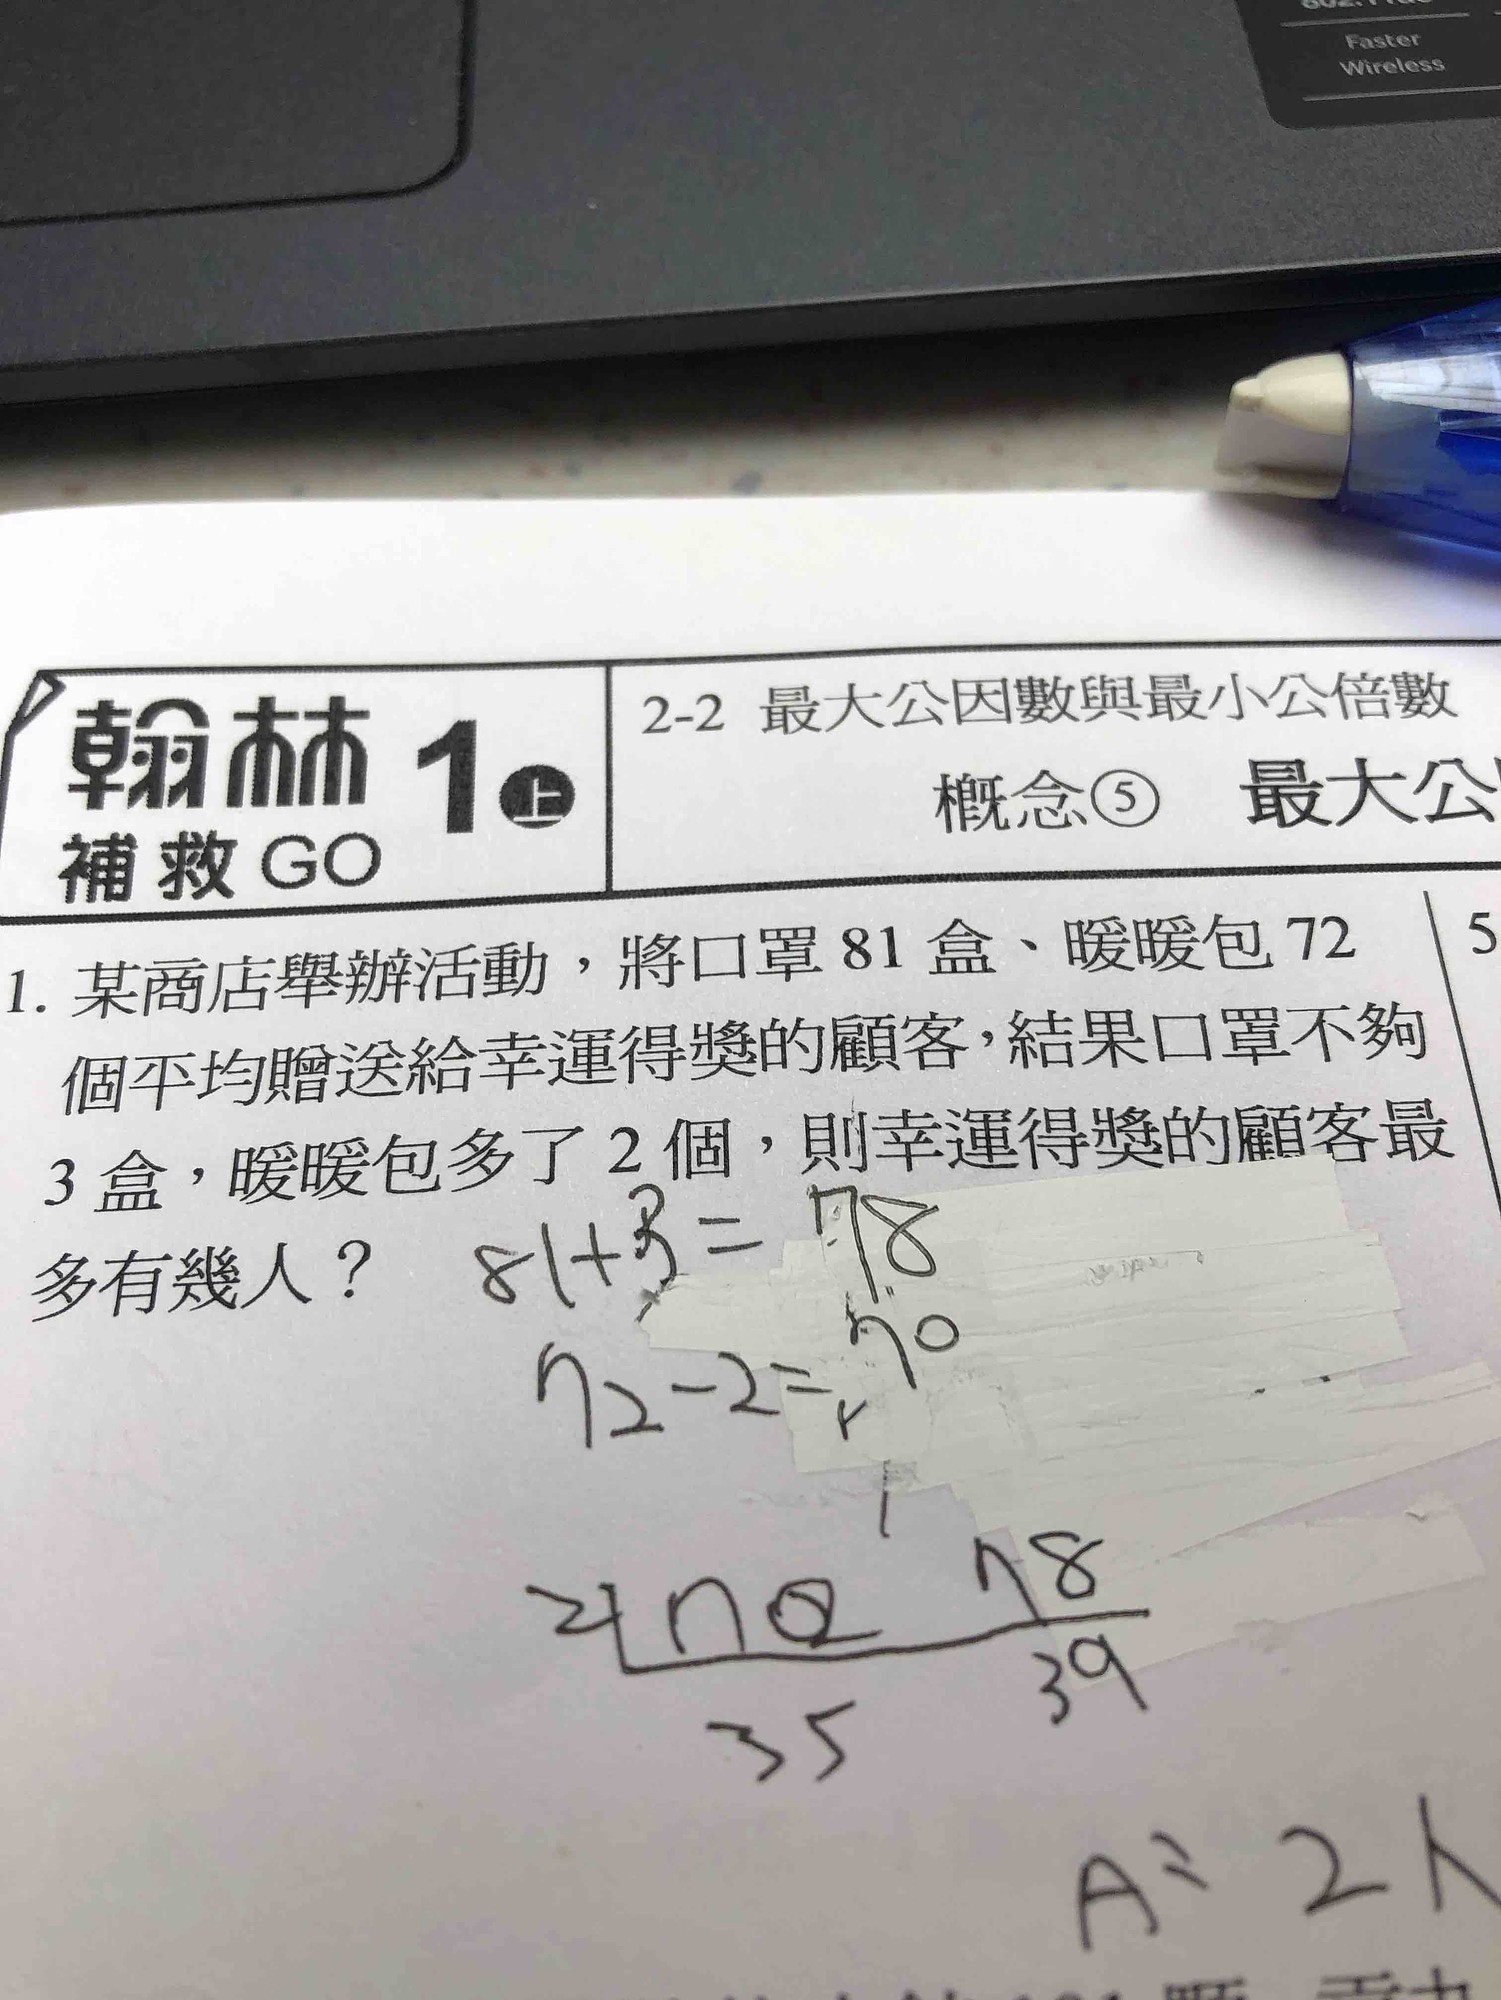 Faster
Wireless
翰林 1上
補救GO
2-2 最大公因數與最小公倍數
概念⑤ 最大公
1. 某商店舉辦活動，將口罩 81 盒、暖暖包 72
個平均贈送給幸運得獎的顧客，結果口罩不夠
3 盒，暖暖包多了 2 個，則幸運得獎的顧客最
多有幾人？
81+3=78
72-2=70
2 70 78
35 39
A: 2人
5